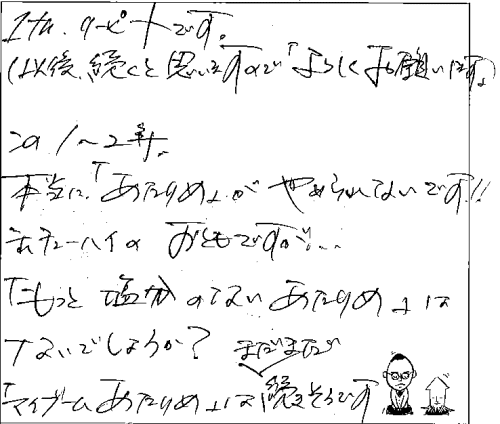 リピートです。
(以後、続くと思いますので「よろしくお願いします。)
この1〜2年、
本当に、「あたりめ」が やめられないです!!
チューハイの おともですが…
「もっと 塩分のない あたりめ」は
ないでしょうか? まだまだ
「マイブームあたりめ」は続きそうです